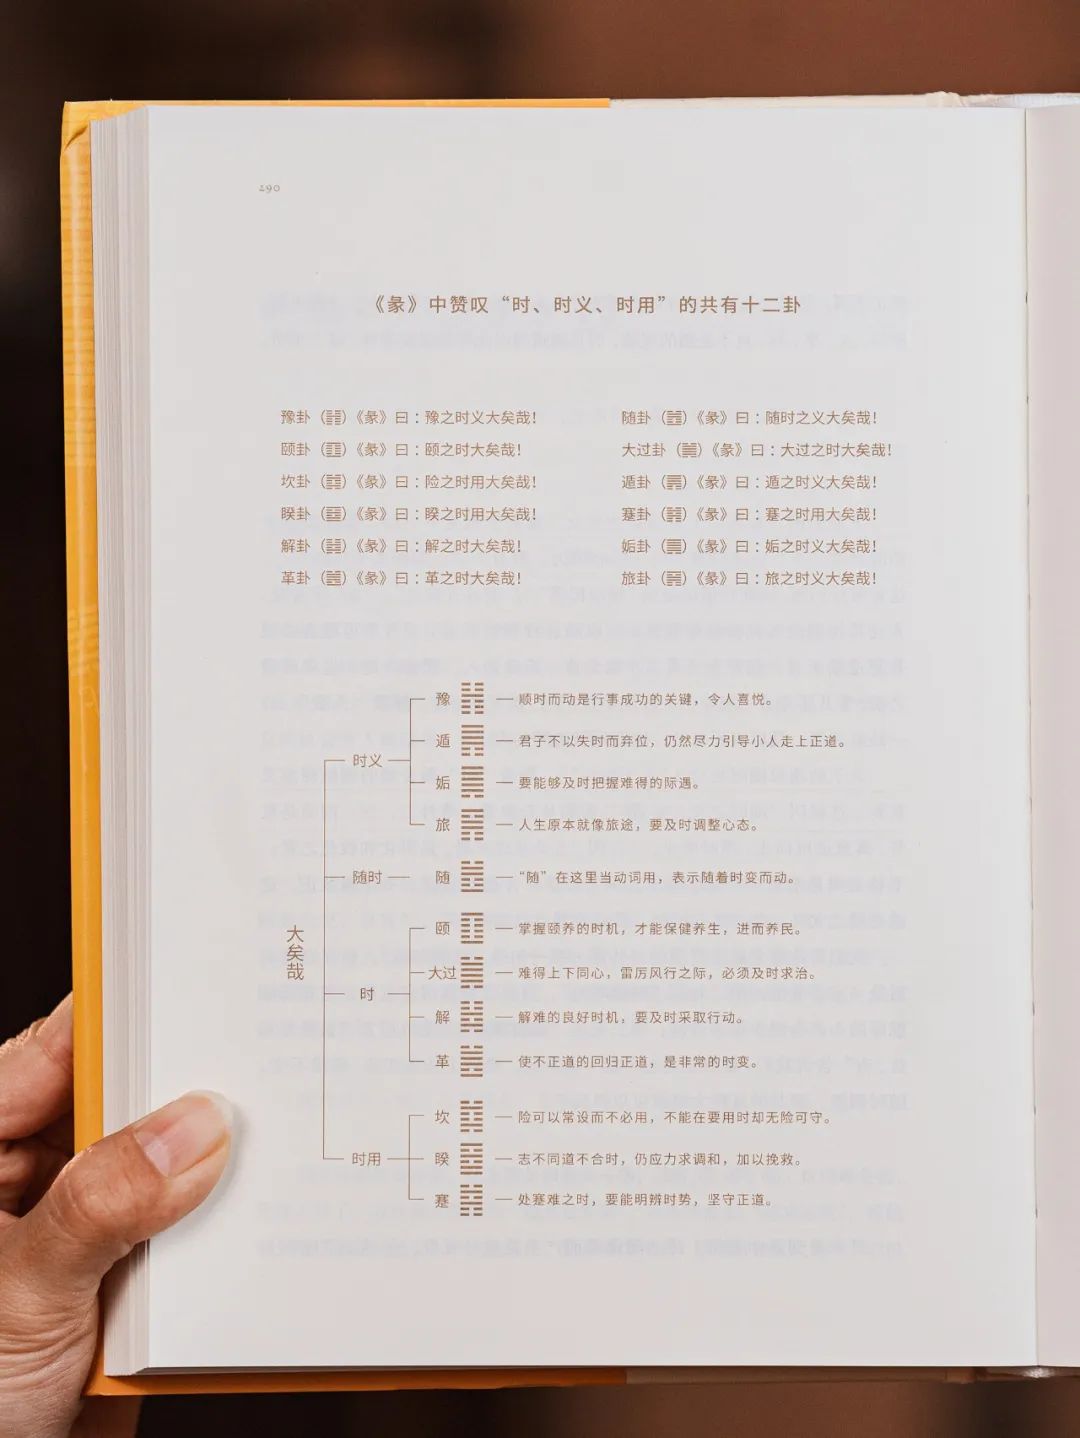 290
《彖》中赞叹“时、时义、时用”的共有十二卦
豫卦（䷏）《彖》曰：豫之时义大矣哉！
随卦（䷐）《彖》曰：随时之义大矣哉！
颐卦（䷚）《彖》曰：颐之时大矣哉！
大过卦（䷛）《彖》曰：大过之时大矣哉！
坎卦（䷜）《彖》曰：险之时用大矣哉！
遁卦（䷠）《彖》曰：遁之时义大矣哉！
睽卦（䷥）《彖》曰：睽之时用大矣哉！
蹇卦（䷦）《彖》曰：蹇之时用大矣哉！
解卦（䷧）《彖》曰：解之时大矣哉！
姤卦（䷫）《彖》曰：姤之时义大矣哉！
革卦（䷰）《彖》曰：革之时大矣哉！
旅卦（䷷）《彖》曰：旅之时义大矣哉！
大矣哉
时义
豫 ䷏ 顺时而动是行事成功的关键，令人喜悦。
遁 ䷠ 君子不以失时而弃位，仍然尽力引导小人走上正道。
姤 ䷫ 要能够及时把握难得的际遇。
旅 ䷷ 人生原本就像旅途，要及时调整心态。
随时
随 ䷐ “随”在这里当动词用，表示随着时变而动。
时
颐 ䷚ 掌握颐养的时机，才能保健养生，进而养民。
大过 ䷛ 难得上下同心，雷厉风行之际，必须及时求治。
解 ䷧ 解难的良好时机，要及时采取行动。
革 ䷰ 使不正道的回归正道，是非常的时变。
时用
坎 ䷜ 险可以常设而不必用，不能在要用时却无险可守。
睽 ䷥ 志不同道不合时，仍应力求调和，加以挽救。
蹇 ䷦ 处蹇难之时，要能明辨时势，坚守正道。